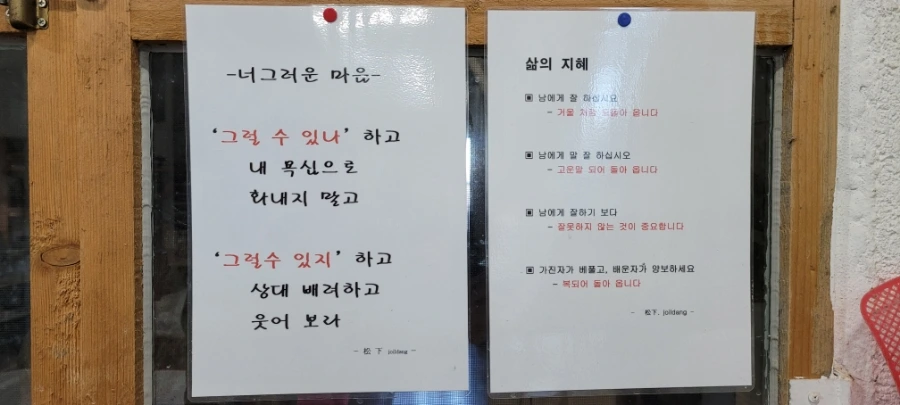 -너그러운 마음-
‘그럴 수 있나’ 하고
내 욕심으로
화내지 말고
‘그럴수 있지’ 하고
상대 배려하고
웃어 보라
- 松下 jolldang -
삶의 지혜
▣ 남에게 잘 하십시요
- 거울 처럼 되돌아 옵니다
▣ 남에게 말 잘 하십시오
- 고운말 되어 돌아 옵니다
▣ 남에게 잘하기 보다
- 잘못하지 않는 것이 중요합니다
▣ 가진자가 베풀고, 배운자가 양보하세요
- 복되어 돌아 옵니다
- 松下. jolldang -